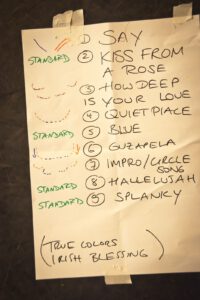 SAY
STANDARD ② KISS FROM
A ROSE
③ HOW DEEP
IS YOUR LOVE
④ QUIET PLACE
STANDARD ⑤ BLUE
⑥ GUZAPELA
⑦ IMPRO/CIRCLE
SONG
STANDARD ⑧ HALLELUJAH
STANDARD ⑨ SPLANKY
(TRUE COLORS
IRISH BLESSING)